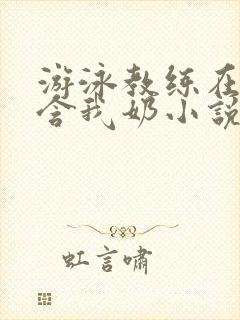 游泳教练在
含我奶小說
虹言嘯